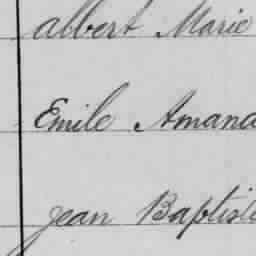 albert Marie
Emile Amand
jean Baptist